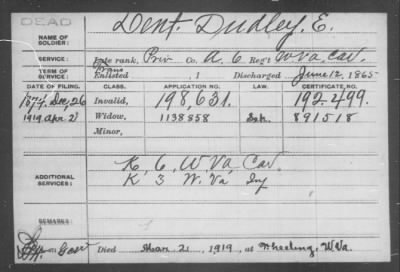 DEAD
NAME OF SOLDIER: Dent. Dudley, E.
SERVICE: Late rank, Priv Co. A. 6 Reg't W Va Cav.
TERM OF SERVICE: Trans Enlisted , 1 Discharged June 12, 1865
DATE OF FILING. CLASS. APPLICATION NO. LAW. CERTIFICATE NO.
1874. Dec, 26 Invalid, 198,631. 192.499.
1919. Apr. 2 Widow, 1138858 891518
Minor,
ADDITIONAL SERVICES: K, 6, W, Va, Cav
K 3 W. Va. Inf
REMARKS:
Died Mar. 2, , 1919, at Wheeling, W.Va.